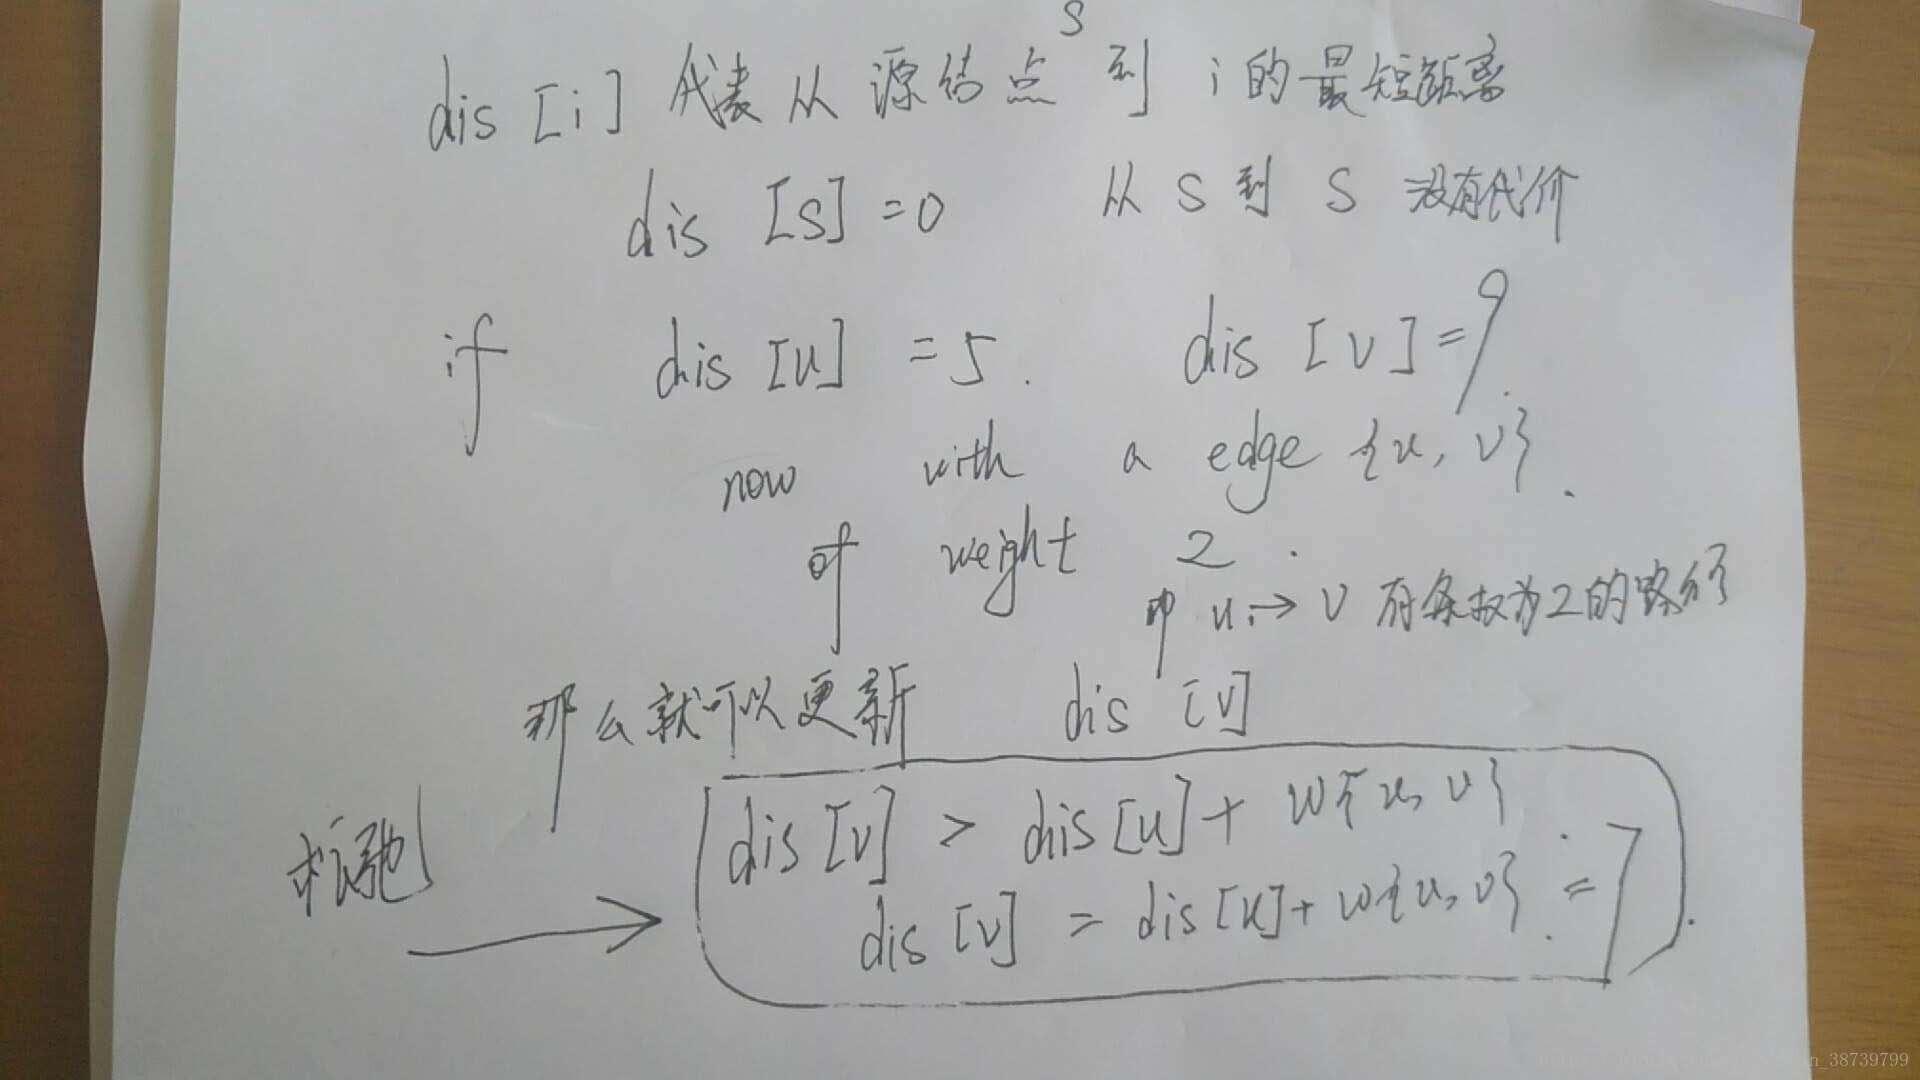 dis [i] 代表从源结点S到 i 的最短距离
dis [S] = 0 从 S 到 S 没有代价
if dis [u] = 5. dis [v] = 9.
now with a edge {u, v}.
of weight 2.
即 u → v 有条权为2的路径
那么就可以更新 dis [v]
dis [v] > dis [u] + w{u, v}
松弛 dis [v] = dis [u] + w{u, v} = 7.
n_38739799